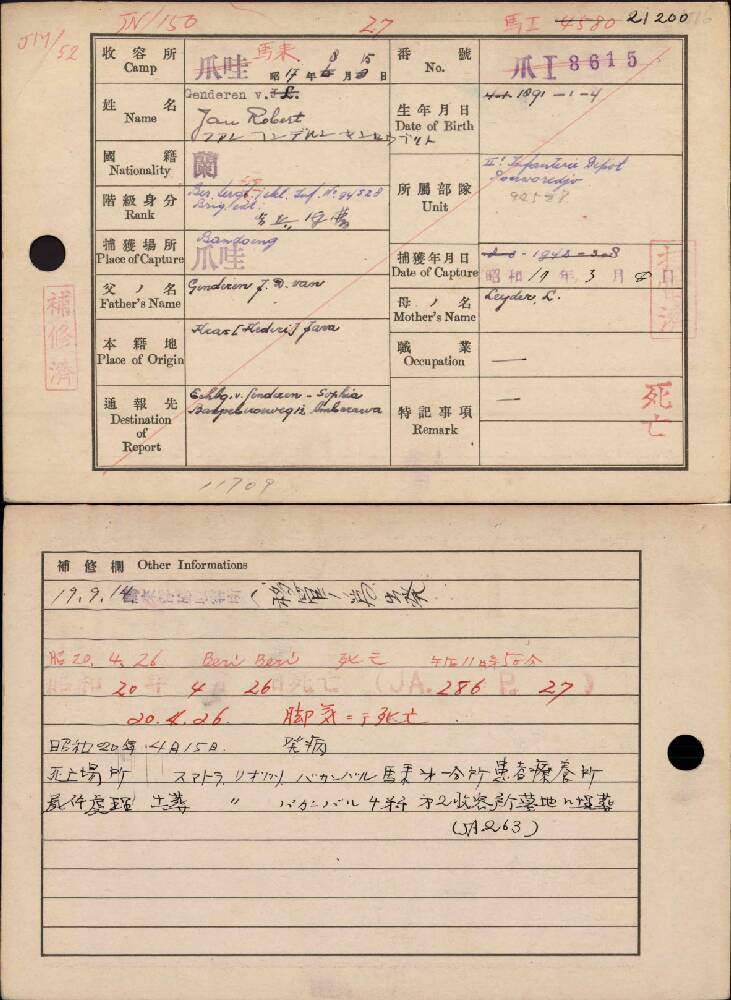 JN/150 27 馬I 4580 21200
JM/52
收容所 Camp 爪哇 馬来 昭17年8月15日
番號 No. 爪I8615
姓名 Name Genderen v. J.L.
Jan Robert
生年月日 Date of Birth 1891-1-4
國籍 Nationality 蘭
階級身分 Rank
Brig.
No 94528
所屬部隊 Unit II Infanterie Depot
Poerworedjo
94528
捕獲場所 Place of Capture Bandoeng
爪哇
捕獲年月日 Date of Capture 1942-3-8
昭和17年3月8日
父ノ名 Father's Name Genderen J. D. van
母ノ名 Mother's Name Leyder, L.
本籍地 Place of Origin [Kediri] Java
職業 Occupation —
通報先 Destination of Report Echtg. v. Genderen - Sophia
Ambarawa
特記事項 Remark —
死亡
補修濟
11709
補修欄 Other Informations
19.9.14
昭20.4.26 Beri Beri 死亡 午后11時50分
昭和20年4月26日死亡 (JA.286 P.27)
20.4.26. 脚気ニテ死亡
昭和20年4月15日 発病
死亡場所 スマトラ リオ州 パカンバル 馬来第一分所患者療養所
屍体處理 土葬 〃 パカンバル 4粁 第2收容所墓地ニ埋葬
(JA263)